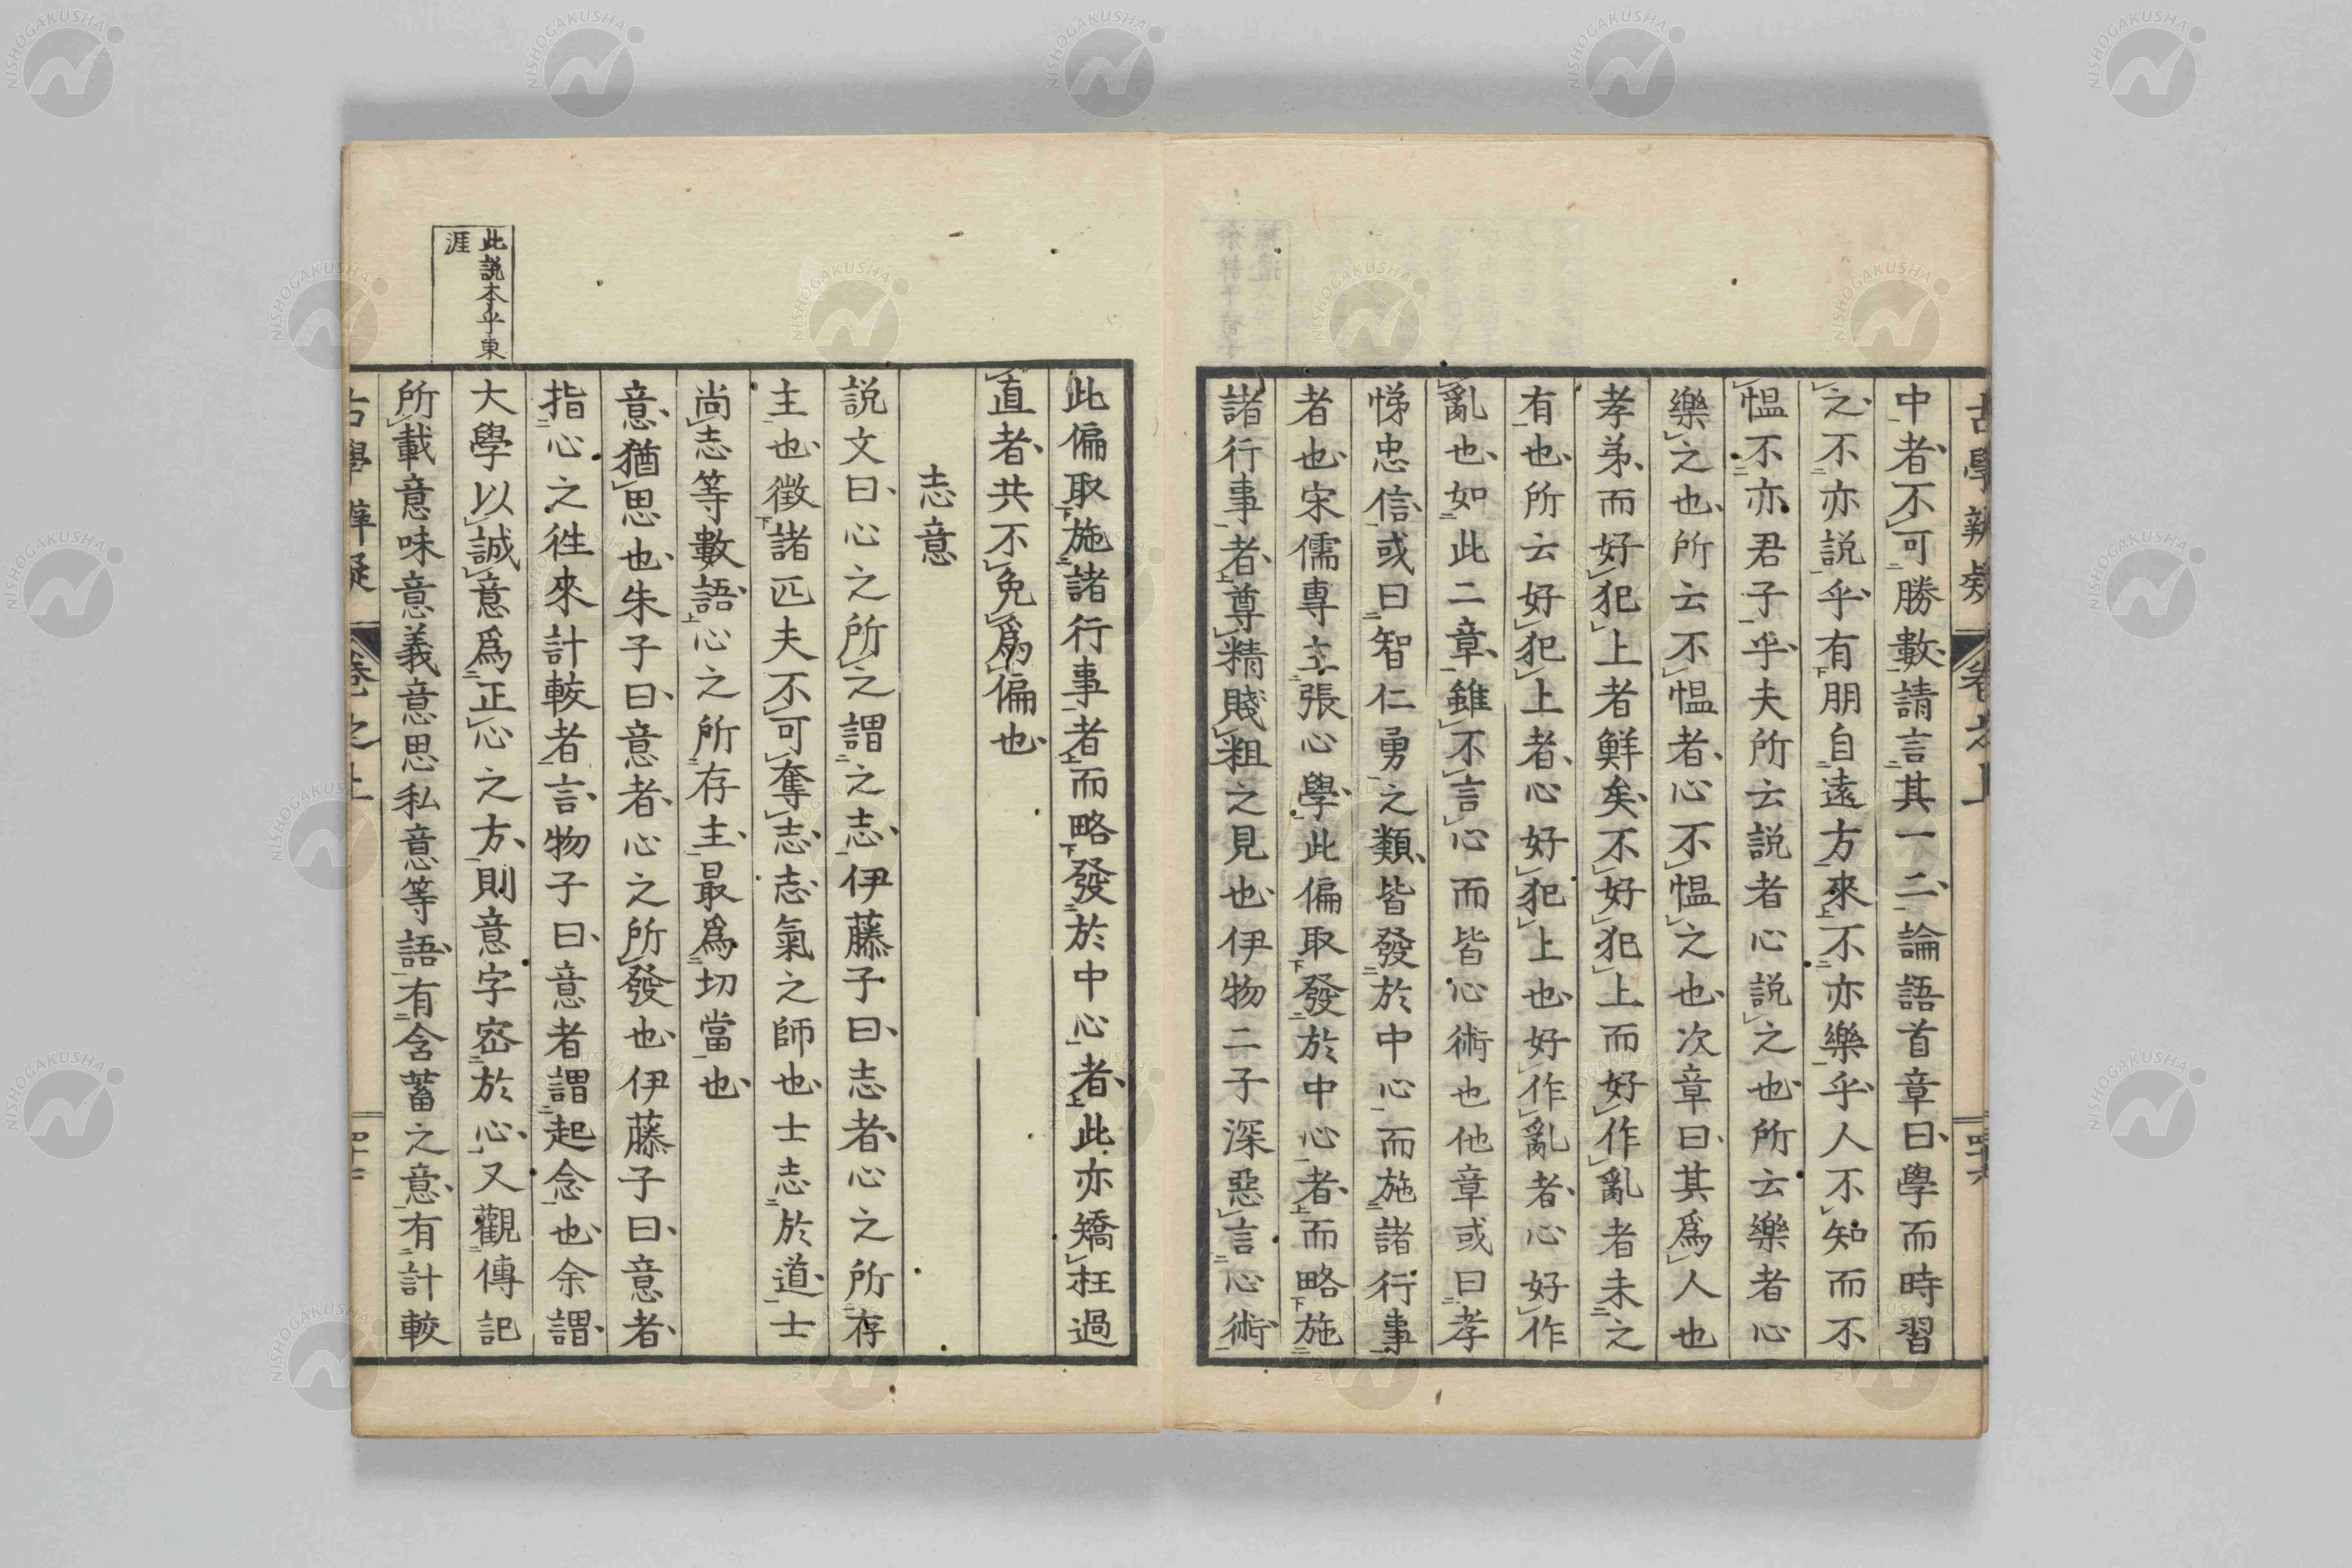 古學辨疑 卷之上
中者不可勝數請言其一二論語首章曰學而時習
之不亦説乎有朋自遠方來不亦樂乎人不知而不
愠不亦君子乎夫所云説者心説之也所云樂者心
樂之也所云不愠者心不愠之也次章曰其爲人也
孝弟而好犯上者鮮矣不好犯上而好作亂者未之
有也所云好犯上者心好犯上也好作亂者心好作
亂也如此二章雖不言心而皆心術也他章或曰孝
悌忠信或曰智仁勇之類皆發於中心而施諸行事
者也宋儒專主張心學此偏取發於中心者而略施
諸行事者尊精賤粗之見也伊物二子深惡言心術
此偏取施諸行事者而略發於中心者此亦矯枉過
直者共不免爲偏也
志意
説文曰心之所之謂之志伊藤子曰志者心之所存
主也徵諸匹夫不可奪志志氣之師也士志於道士
尚志等數語心之所存主最爲切當也
意猶思也朱子曰意者心之所發也伊藤子曰意者
指心之徃來計較者言物子曰意者謂起念也余謂
大學以誠意爲正心之方則意字宻於心又觀傳記
所載意味意義意思私意等語有含蓄之意有計較
此説本乎東
涯
古學辨疑 卷之上
NISHOGAKUSHA